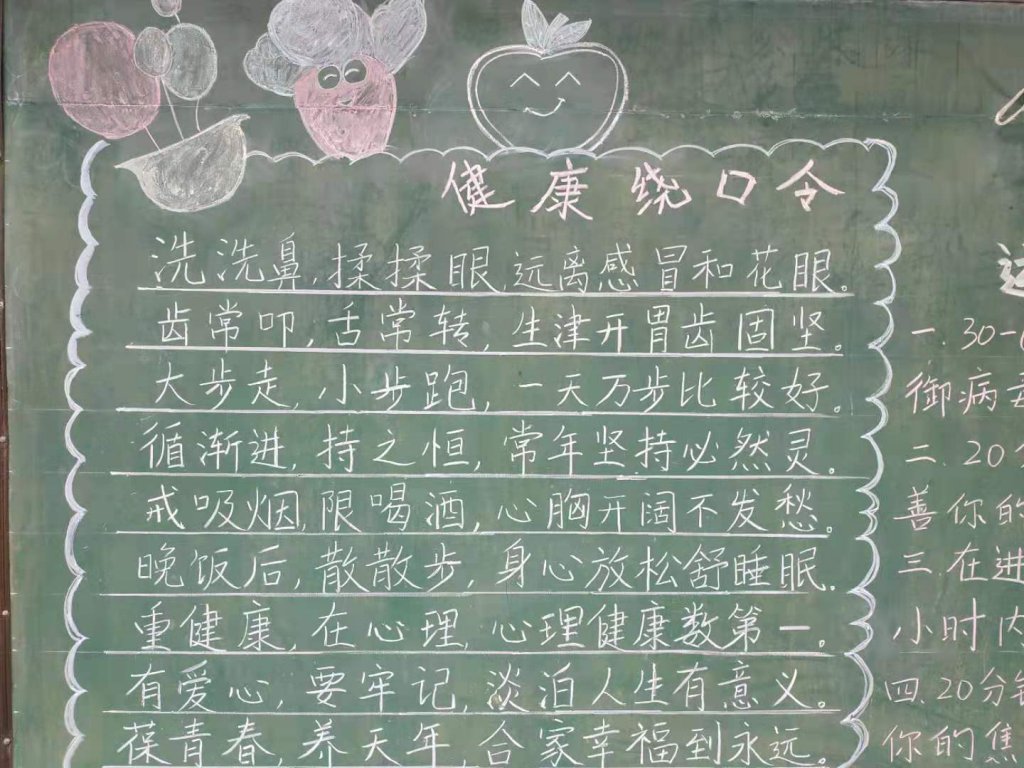 健康绕口令
洗洗鼻,揉揉眼,远离感冒和花眼。
齿常叩,舌常转,生津开胃齿固坚。
大步走,小步跑,一天万步比较好。
循渐进,持之恒,常年坚持必然灵。
戒吸烟,限喝酒,心胸开阔不发愁。
晚饭后,散散步,身心放松舒睡眠。
重健康,在心理,心理健康数第一。
有爱心,要牢记,淡泊人生有意义。
葆青春,养天年,合家幸福到永远。
一.30-
御病
二.20
善你的
三.在进
小时内
四.20分钟
你的焦